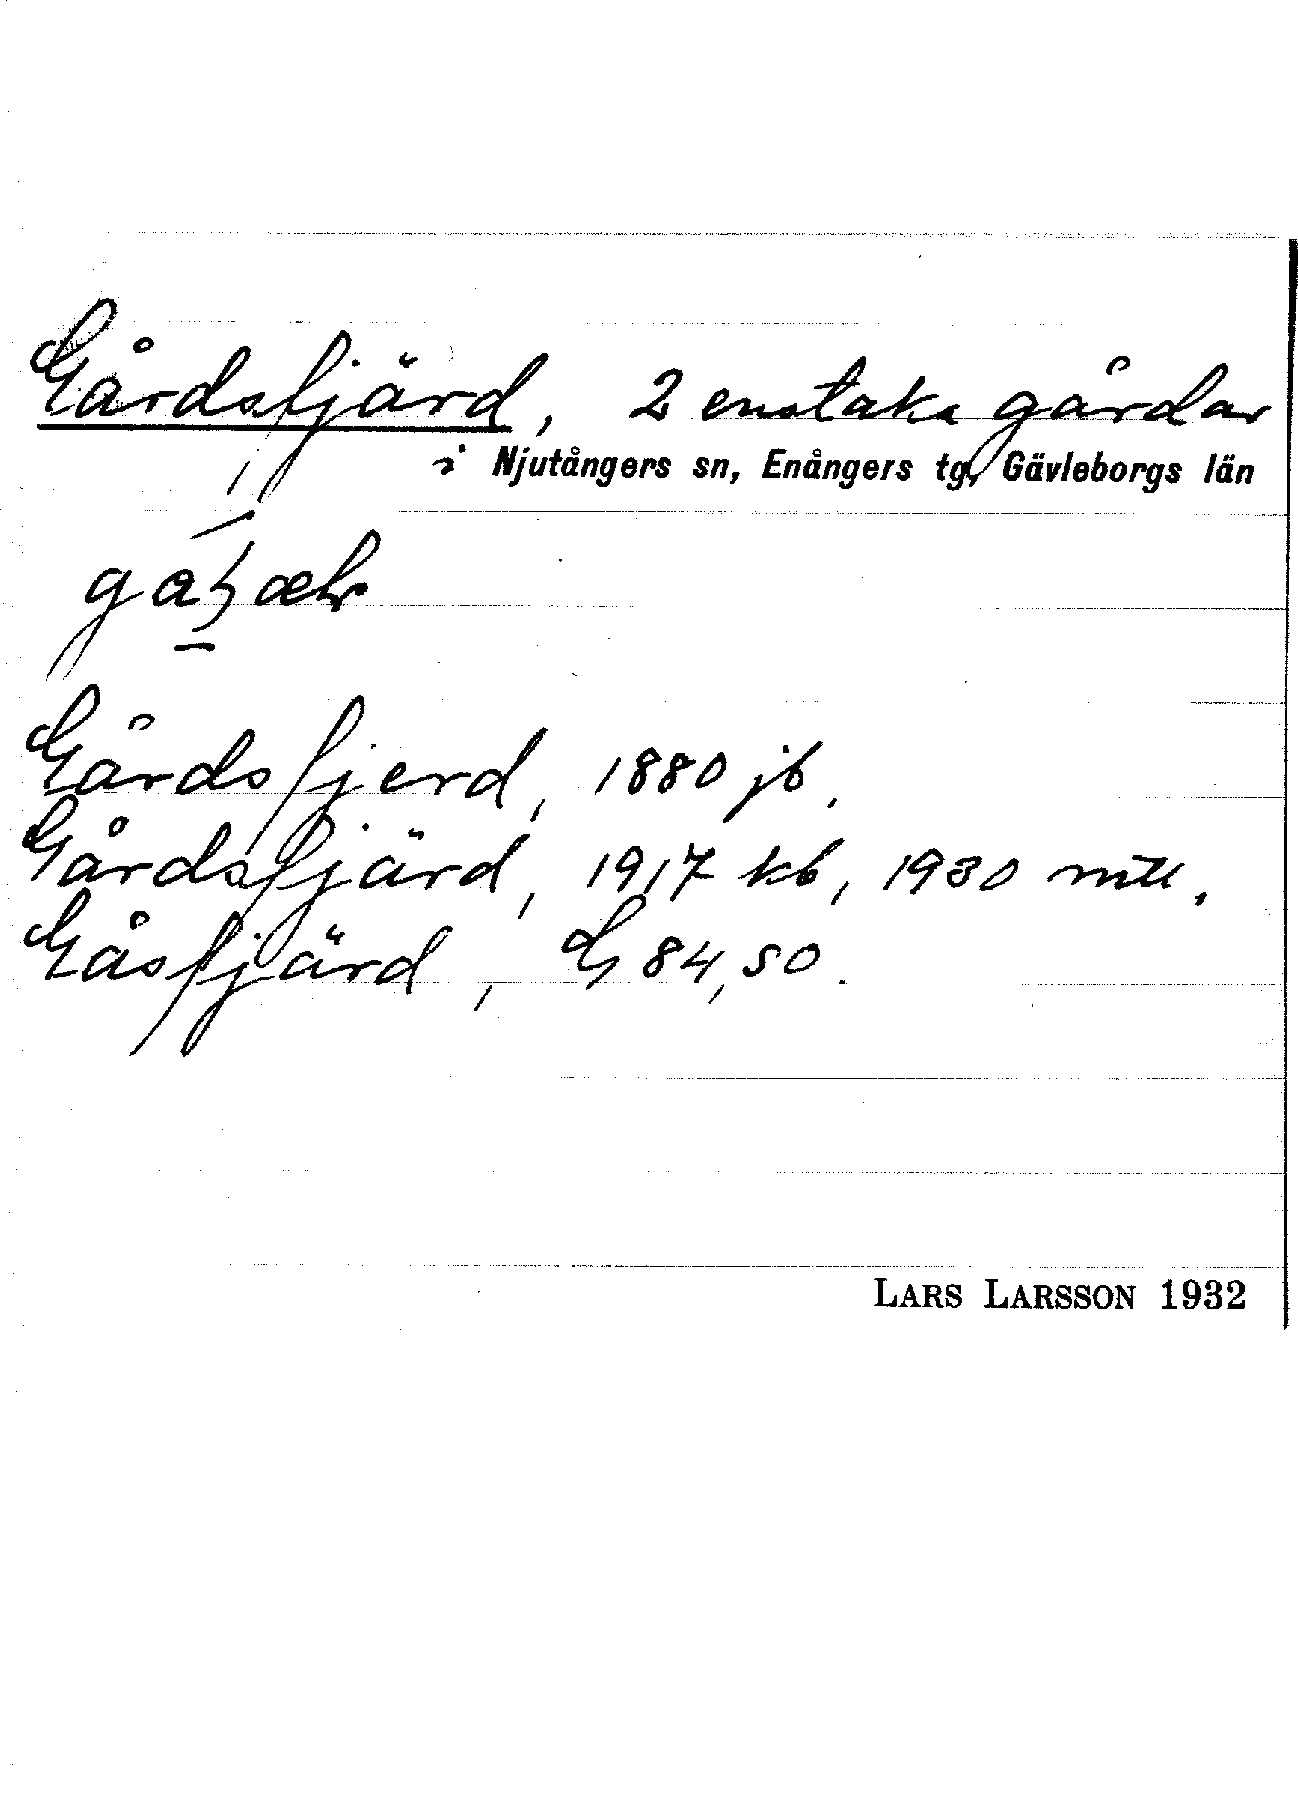 Gårdsfjärd, 2 enstaka gårdar
i Njutångers sn, Enångers tg, Gävleborgs län
Gårdsfjerd, 1880 jb,
Gårdsfjärd, 1917 kb, 1930 mtl.
Gåsfjärd, G 84,50.
LARS LARSSON 1932